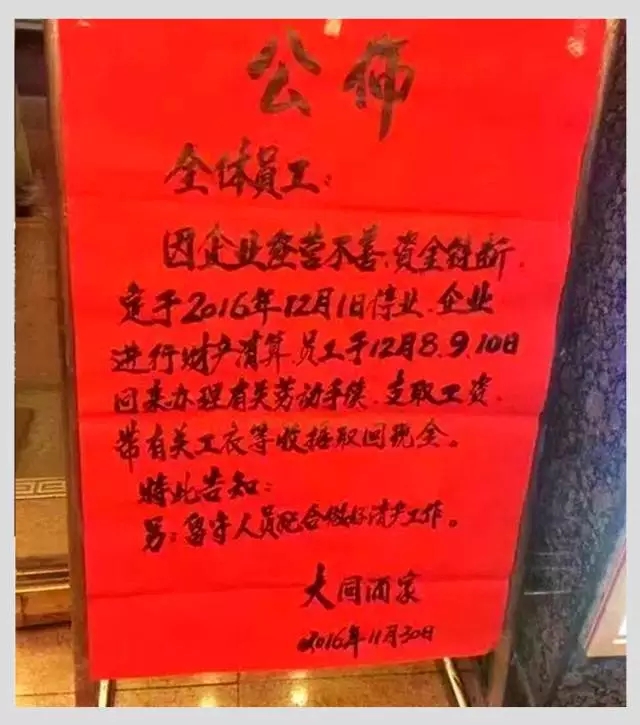 公佈
全体员工:
因企业经营不善、資金链断,
定于2016年12月1日停业、企业
进行财产清算、员工于12月8.9.10日
回来办理有关劳动手续、支取工资、
带有关工衣等收据取回现金。
特此告知:
另:留守人员配合做好清产工作。
大同酒家
2016年11月30日